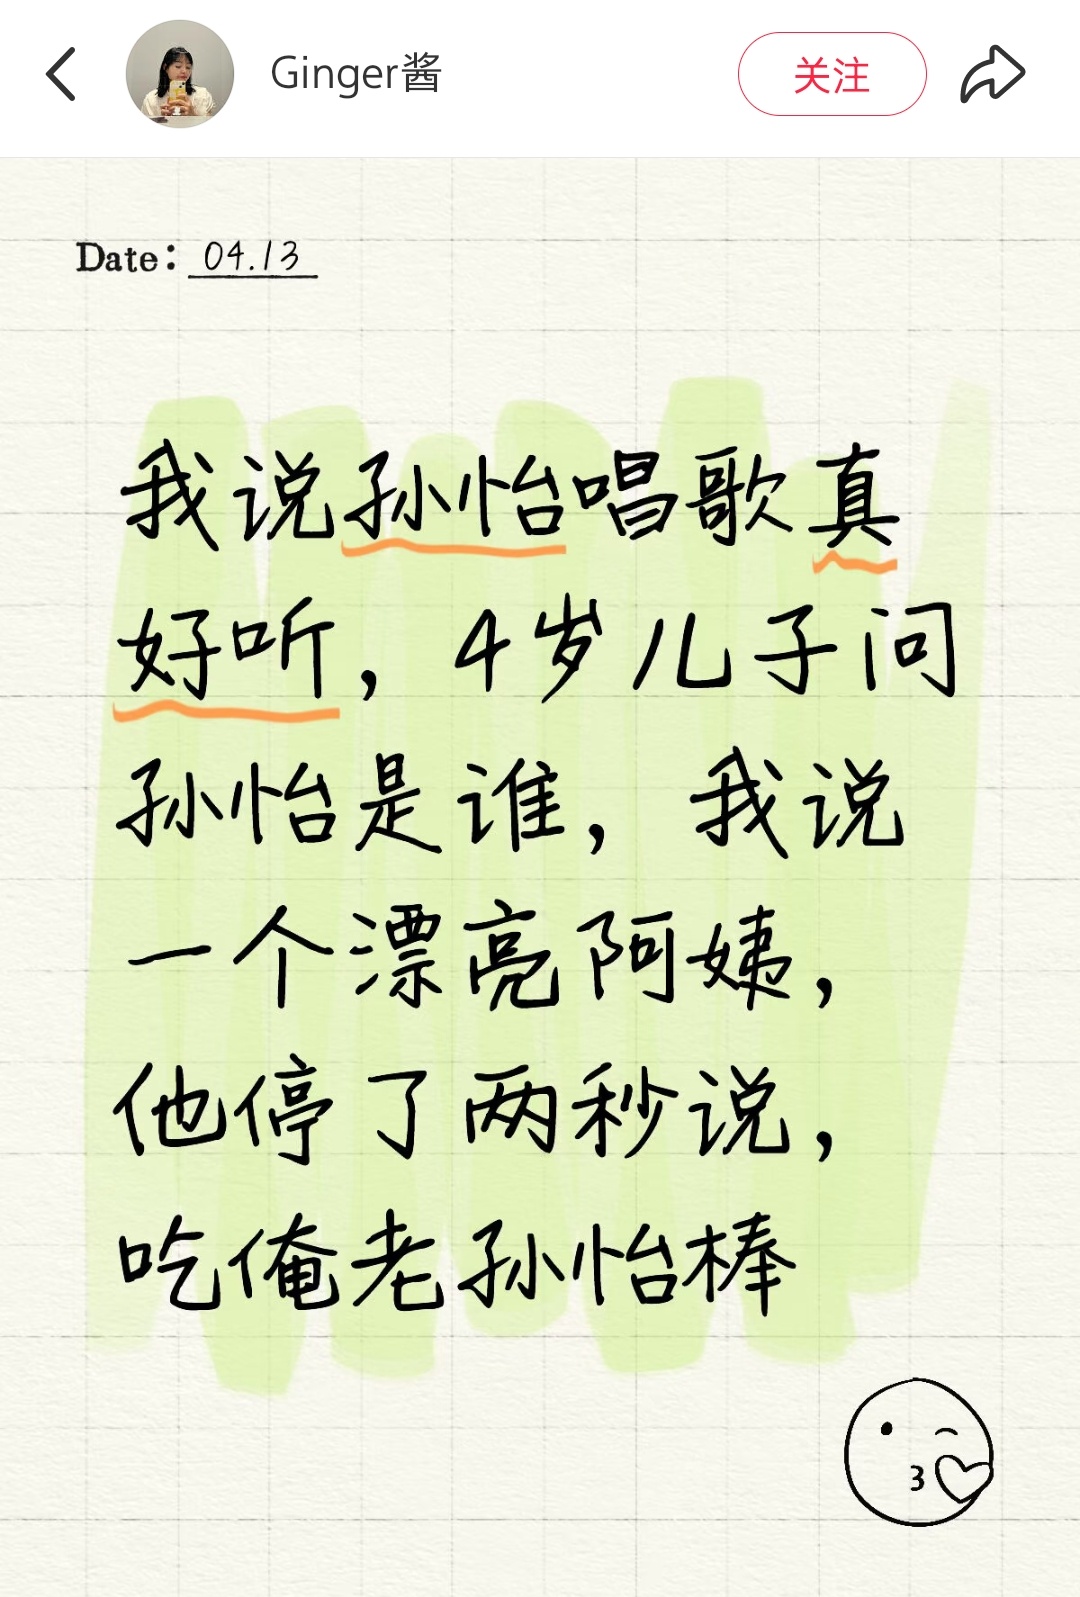 Ginger酱
关注
Date: 04.13
我说孙怡唱歌真
好听，4岁儿子问
孙怡是谁，我说
一个漂亮阿姨，
他停了两秒说，
吃俺老孙怡棒